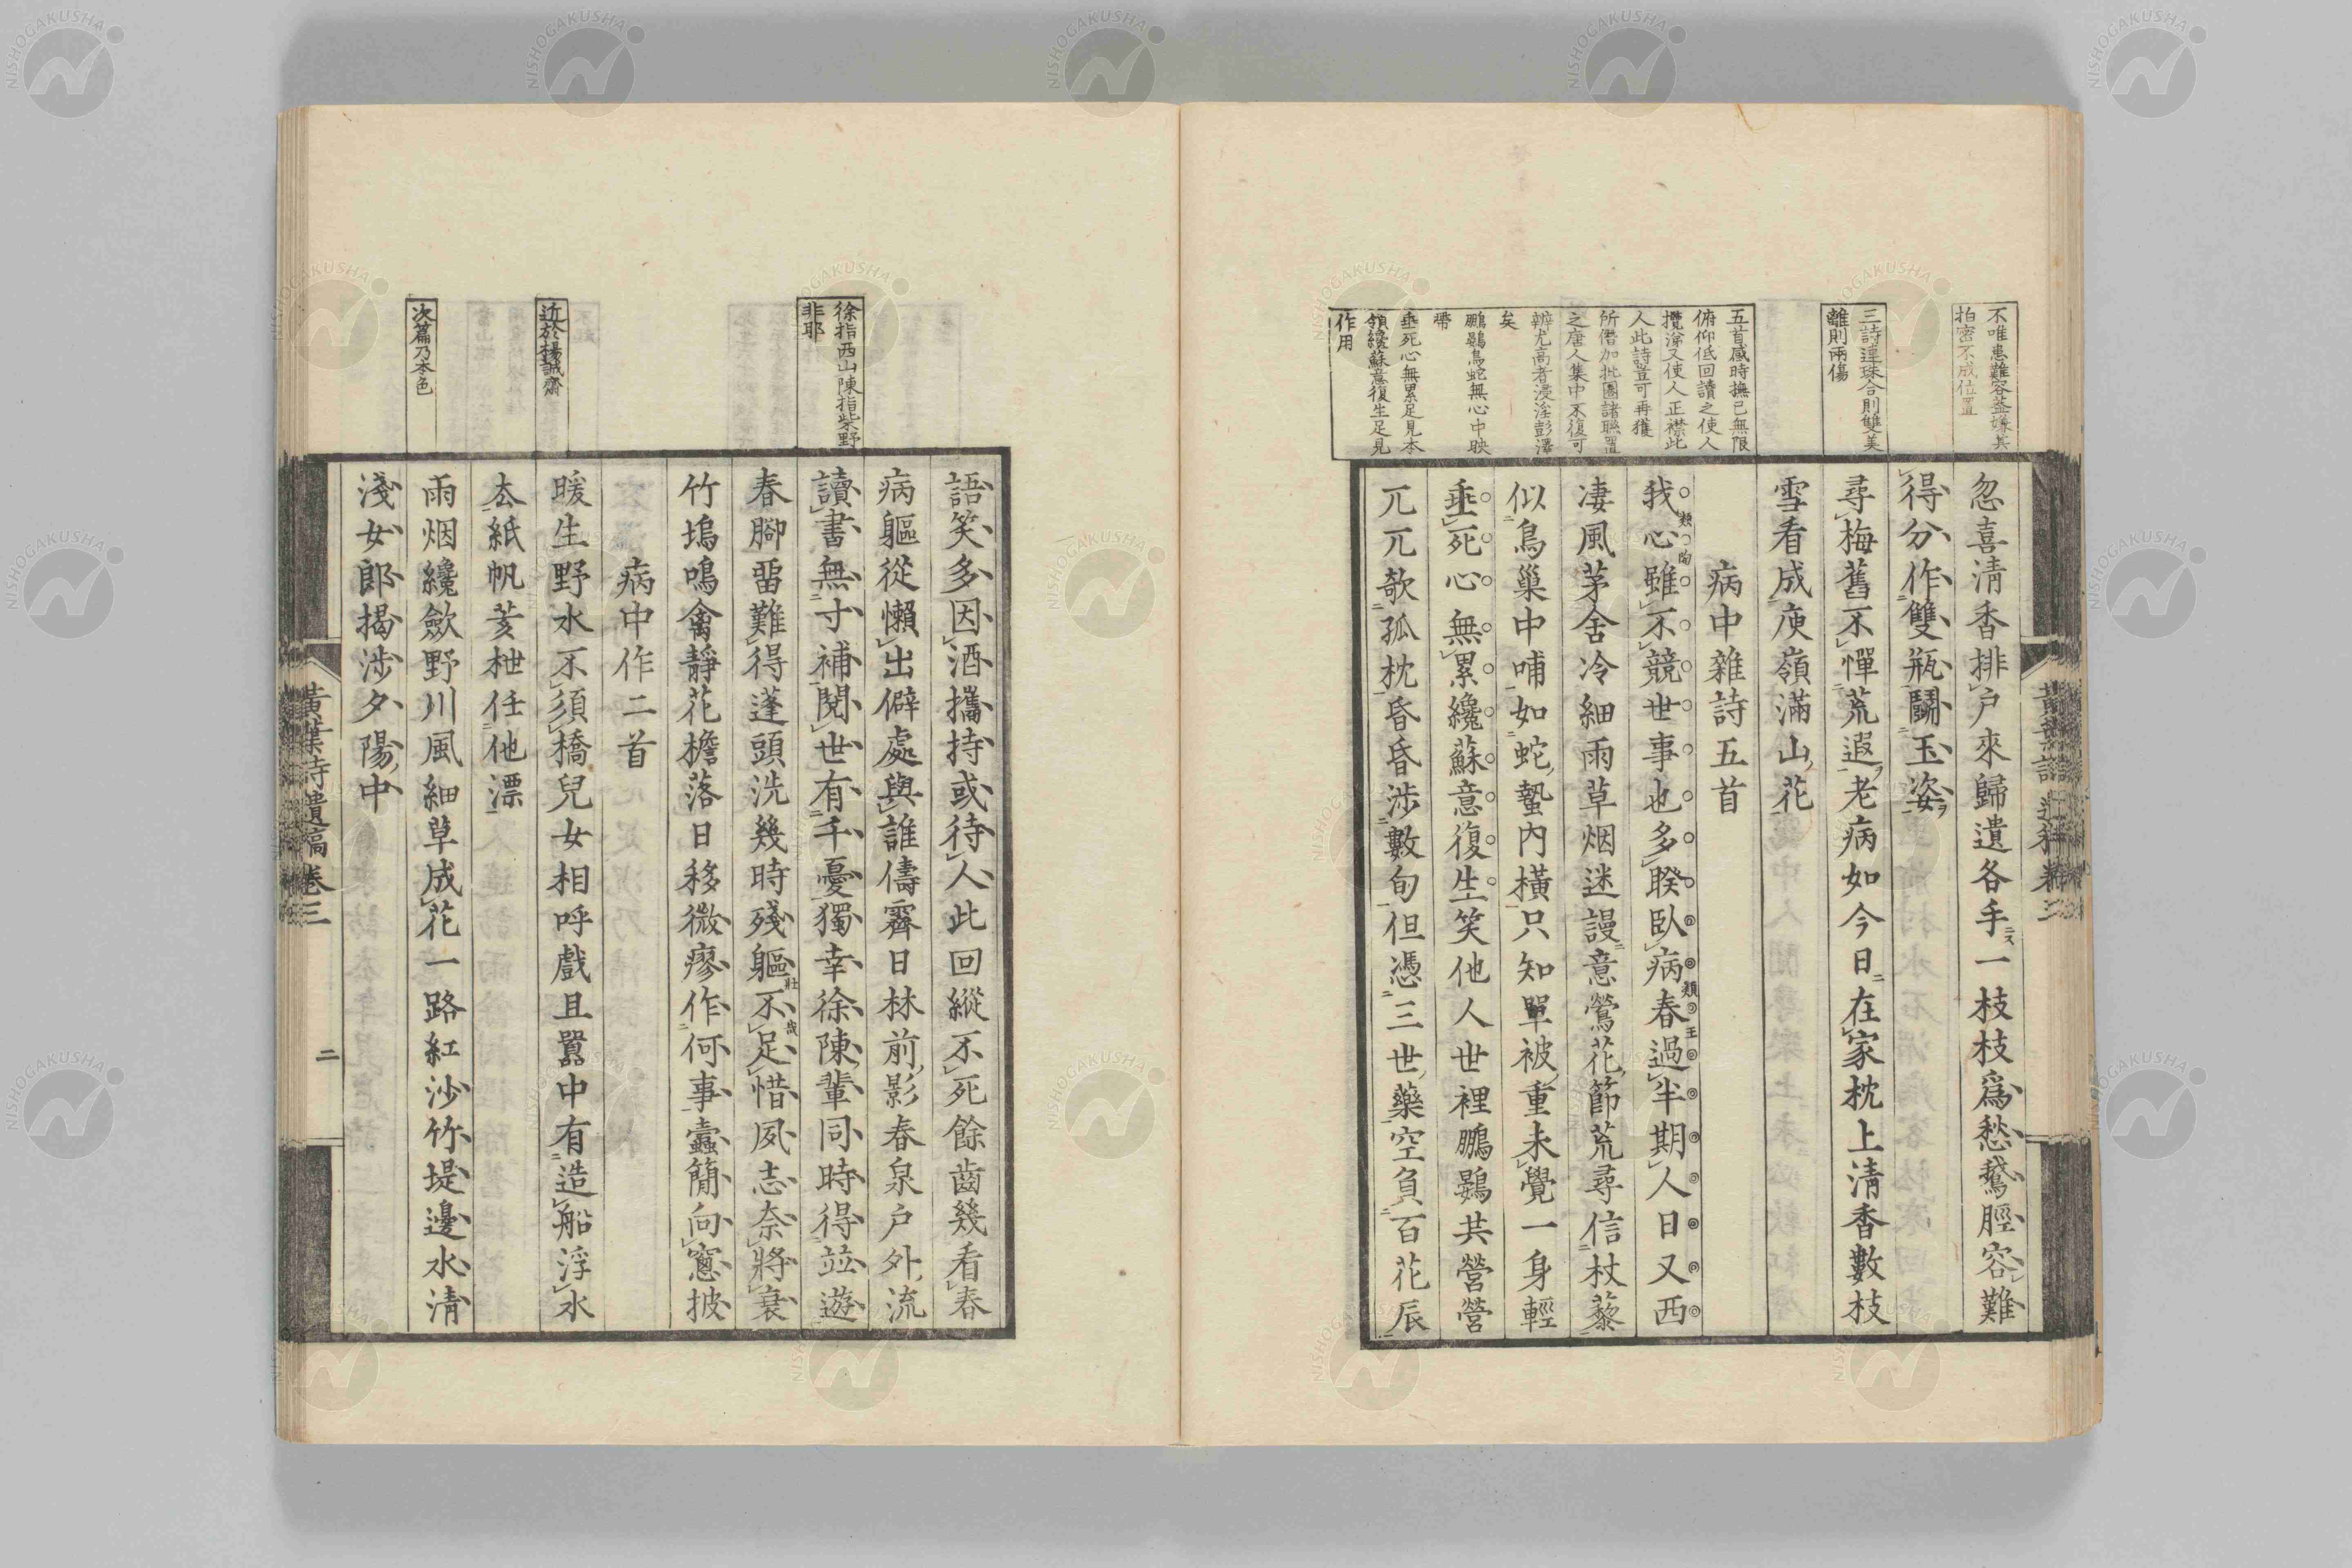 不唯患難容蓋嫌其
拍密不成位置
三詩連珠合則雙美
離則兩傷
五首感時撫己無限
俯仰低回讀之使人
攬涕又使人正襟此
人此詩豈可再獲
所僭加批圈諸聯置
之唐人集中不復可
辨尤高者浸淫彭澤
矣
鵬鷃鳥蛇無心中映
帶
垂死心無累足見本
領纔蘇意復生足見
作用
忽喜清香排戶來歸遺各手一枝枝爲愁鵞脛容難
得分作雙瓶鬭玉姿
尋梅舊不憚荒遐老病如今日在家枕上清香數枝
雪看成庾嶺滿山花
病中雜詩五首
我心雖不競世事也多睽臥病春過半期人日又西
淒風茅舍冷細雨草烟迷謾意鶯花節荒尋信杖藜
似鳥巢中哺如蛇蟄內橫只知單被重未覺一身輕
垂死心無累纔蘇意復生笑他人世裡鵬鷃共營營
兀兀欹孤枕昏昏涉數旬但憑三世藥空負百花辰
徐指西山陳指柴野
非耶
近於楊誠齋
次篇乃本色
語笑多因酒攜持或待人此回縱不死餘齒幾看春
病軀從懶出僻處與誰儔霽日林前影春泉戶外流
讀書無寸補閱世有千憂獨幸徐陳輩同時得竝遊
春腳畱難得蓬頭洗幾時殘軀不足惜夙志奈將衰
竹塢鳴禽靜花檐落日移微瘳作何事蠹簡向窻披
病中作二首
暖生野水不須橋兒女相呼戲且囂中有造船浮水
去紙帆荄枻任他漂
雨烟纔斂野川風細草成花一路紅沙竹堤邊水清
淺女郎揭涉夕陽中
黃葉詩遺稿卷三
二
NISHOGAKUSHA